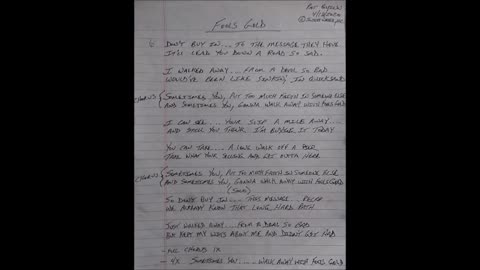 FOOLS GOLD
G DON'T BUY IN.... TO THE MESSAGE THEY HAVE
IT'LL LEAD YOU DOWN A ROAD SO SAD.
I WALKED AWAY.... FROM A DEAL SO BAD
WOULD'VE BEEN LIKE SINKING IN QUICKSAND
CHORUS { SOMETIMES YOU, PUT TOO MUCH FAITH IN SOMEONE ELSE
AND SOMETIMES YOU, GONNA WALK AWAY WITH FOOLS GOLD
I CAN SEE.... YOUR SLIP A MILE AWAY....
AND STILL YOU THINK I'M BUYING IT TODAY
YOU CAN TAKE.... A LONG WALK OFF A PIER
TAKE WHAT YOUR SELLING AND GET OUTTA HERE
CHORUS { SOMETIMES YOU, PUT SO MUCH FAITH IN SOMEONE ELSE
AND SOMETIMES YOU, GONNA WALK AWAY WITH FOOLS GOLD
(SOLO)
SO DON'T BUY IN.... THIS MESSAGE
WE ALREADY KNOW THAT LONG, HARD PATH
JUST WALKED AWAY.... FROM A DEAL SO BAD
BUT KEPT MY WITS ABOUT ME AND DIDN'T GET HAD
CHORUS 1X
- 4X SOMETIMES YOU..... WALK AWAY WITH FOOLS GOLD